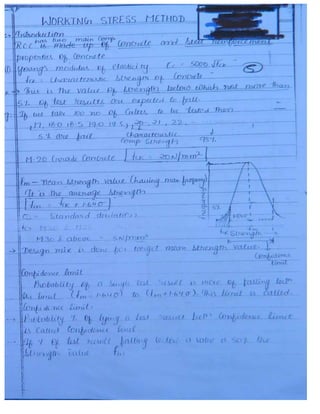 WORKING STRESS METHOD
Introduction
has two main comp
RCC is made up of Concrete and Steel reinforcement
properties of Concrete
Young's modulus of Elasticity Ec = 5000 √fck
5
fck = Characteristic Strength of Concrete
→ This is the value of strength below which not more than
5% of test results are expected to fall.
If we take 100 no of Cubes to be tested then
17, 18.0 18.5, 19.0 19.5, 20, 21, 22
5% are fail Characteristic 95%
Comp Strength
M-20 Grade Concrete fck = 20N/mm²
fm - Mean Strength Value (having max
It is the average strength
fm = fck + 1.64σ
σ = Standard deviation
M30 & above = 5N/mm²
5%
fck Strength fm
→ Design mix is done for target mean strength value
Confidence
limit
Confidence limit
Probability of a single test result is more of falling betn
the limit (fm - 1.64σ) to (fm + 1.64σ). This limit is called
Confidence limit.
→ Probability % of lying a test result betn Confidence limit
is Called Confidence level
→ If % of test result falling below a value is 50% the
Strength value fm